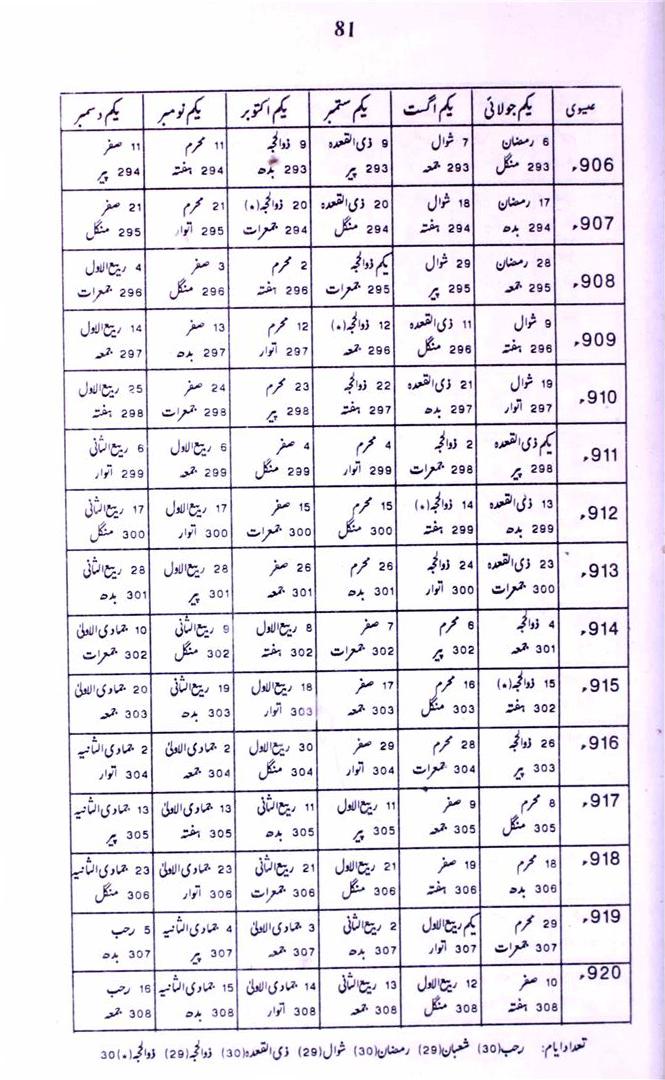 81
عیسوی یکم جولائی یکم اگست یکم ستمبر یکم اکتوبر یکم نومبر یکم دسمبر
906ء 6 رمضان 7 شوال 9 ذی القعدہ 9 ذوالحجہ 11 محرم 11 صفر
293 منگل 293 جمعہ 293 پیر 293 بدھ 294 ہفتہ 294 پیر
907ء 17 رمضان 18 شوال 20 ذی القعدہ 20 ذوالحجہ(٭) 21 محرم 21 صفر
294 بدھ 294 ہفتہ 294 منگل 294 جمعرات 295 اتوار 295 منگل
908ء 28 رمضان 29 شوال یکم ذوالحجہ 2 محرم 3 صفر 4 ربیع الاول
295 جمعہ 295 پیر 295 جمعرات 296 ہفتہ 296 منگل 296 جمعرات
909ء 9 شوال 11 ذی القعدہ 12 ذوالحجہ(٭) 12 محرم 13 صفر 14 ربیع الاول
296 ہفتہ 296 منگل 296 جمعہ 297 اتوار 297 بدھ 297 جمعہ
910ء 19 شوال 21 ذی القعدہ 22 ذوالحجہ 23 محرم 24 صفر 25 ربیع الاول
297 اتوار 297 بدھ 297 ہفتہ 298 پیر 298 جمعرات 298 ہفتہ
911ء یکم ذی القعدہ 2 ذوالحجہ 4 محرم 4 صفر 6 ربیع الاول 6 ربیع الثانی
298 پیر 298 جمعرات 299 اتوار 299 منگل 299 جمعہ 299 اتوار
912ء 13 ذی القعدہ 14 ذوالحجہ(٭) 15 محرم 15 صفر 17 ربیع الاول 17 ربیع الثانی
299 بدھ 299 ہفتہ 300 منگل 300 جمعرات 300 اتوار 300 منگل
913ء 23 ذی القعدہ 24 ذوالحجہ 26 محرم 26 صفر 28 ربیع الاول 28 ربیع الثانی
300 جمعرات 300 اتوار 301 بدھ 301 جمعہ 301 پیر 301 بدھ
914ء 4 ذوالحجہ 6 محرم 7 صفر 8 ربیع الاول 9 ربیع الثانی 10 جمادی الاولیٰ
301 جمعہ 302 پیر 302 جمعرات 302 ہفتہ 302 منگل 302 جمعرات
915ء 15 ذوالحجہ(٭) 16 محرم 17 صفر 18 ربیع الاول 19 ربیع الثانی 20 جمادی الاولیٰ
302 ہفتہ 303 منگل 303 جمعہ 303 اتوار 303 بدھ 303 جمعہ
916ء 26 ذوالحجہ 28 محرم 29 صفر 30 ربیع الاول 2 جمادی الاولیٰ 2 جمادی الثانیہ
303 پیر 304 جمعرات 304 اتوار 304 منگل 304 جمعہ 304 اتوار
917ء 8 محرم 9 صفر 11 ربیع الاول 11 ربیع الثانی 13 جمادی الاولیٰ 13 جمادی الثانیہ
305 منگل 305 جمعہ 305 پیر 305 بدھ 305 ہفتہ 305 پیر
918ء 18 محرم 19 صفر 21 ربیع الاول 21 ربیع الثانی 23 جمادی الاولیٰ 23 جمادی الثانیہ
306 بدھ 306 ہفتہ 306 منگل 306 جمعرات 306 اتوار 306 منگل
919ء 29 محرم یکم ربیع الاول 2 ربیع الثانی 3 جمادی الاولیٰ 4 جمادی الثانیہ 5 رجب
307 جمعرات 307 اتوار 307 بدھ 307 جمعہ 307 پیر 307 بدھ
920ء 10 صفر 12 ربیع الاول 13 ربیع الثانی 14 جمادی الاولیٰ 15 جمادی الثانیہ 16 رجب
308 ہفتہ 308 منگل 308 جمعہ 308 اتوار 308 بدھ 308 جمعہ
تعداد ایام: رجب(30) شعبان(29) رمضان(30) شوال(29) ذی القعدہ(30) ذوالحجہ(29) ذوالحجہ(٭)30